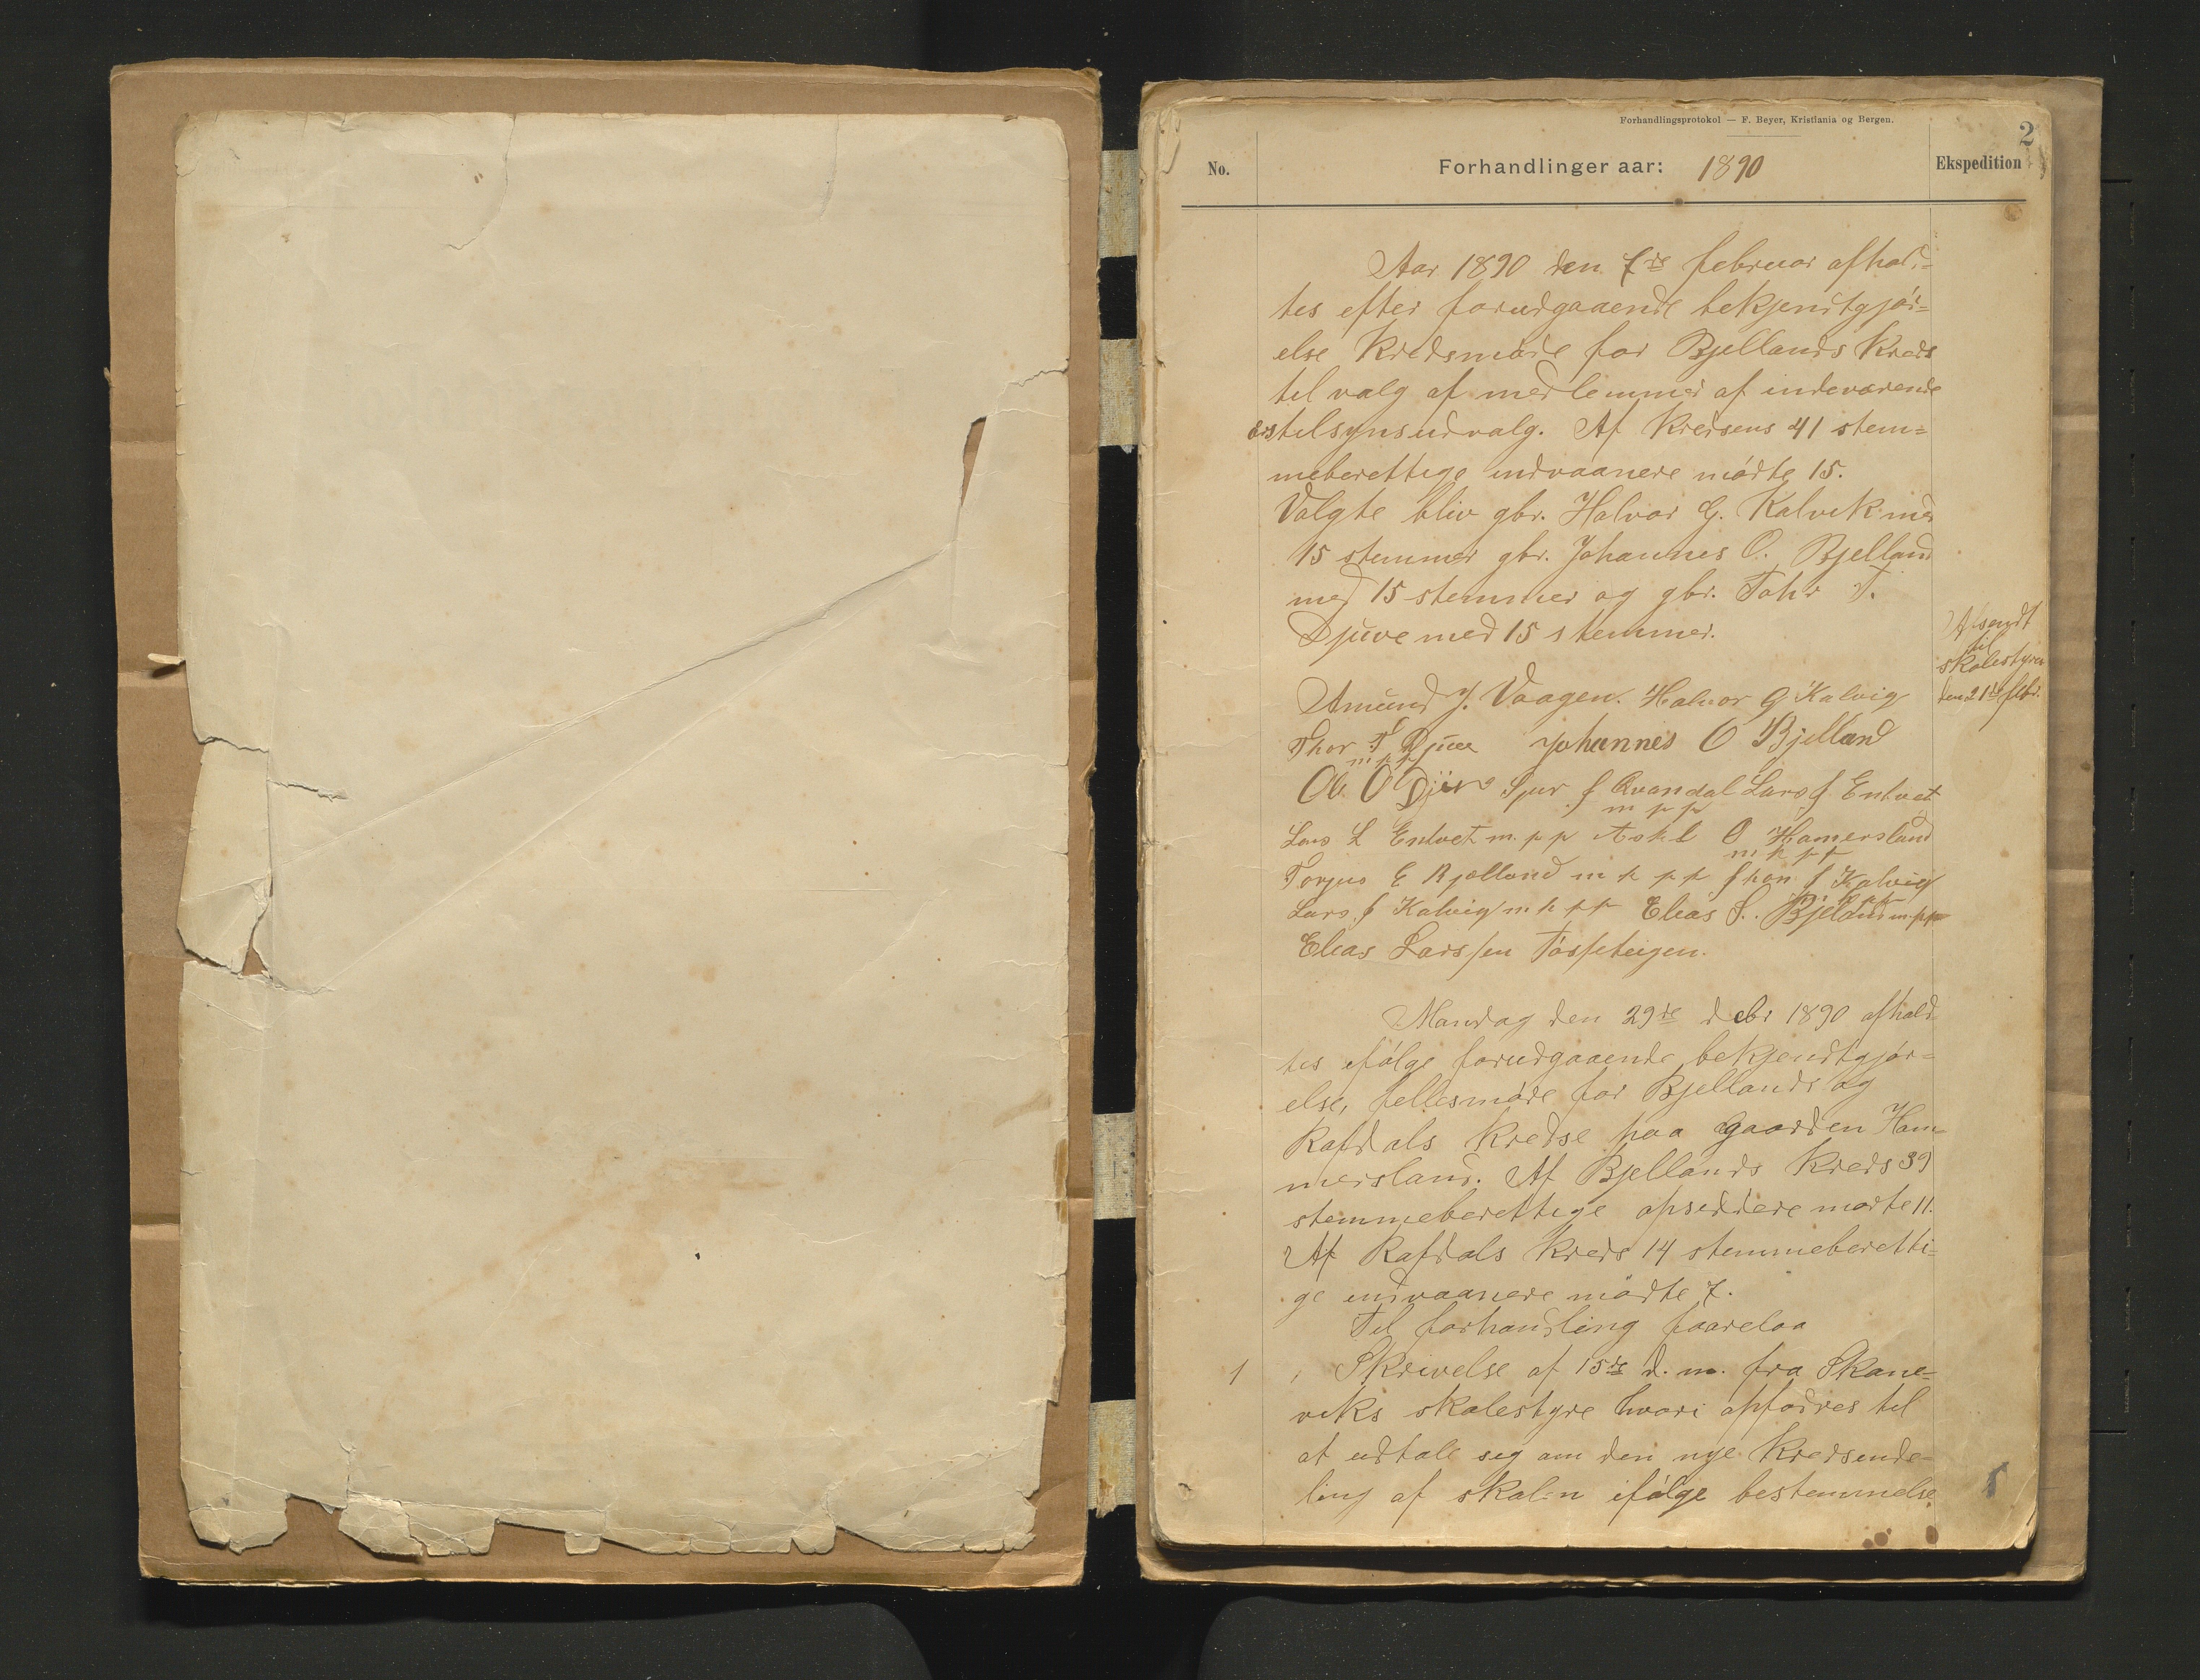 Forhandlingsprotokol — F. Beyer, Kristiania og Bergen.
2
No.
Forhandlinger aar: 1890
Ekspedition
Aar 1890 den 7de februar afhol-
tes efter forudgaaende bekjendtgjör-
else Kredsmøde for Bjellands Kreds
til valg af medlemmer af indeværende
tilsynsudvalg. Af Kredsens 41 stem=
meberettige indvaanere mödte 15.
Valgte bliv gbr. Halvor G. Kalvik med
15 stemmer gbr. Johannes O. Bjelland
med 15 stemmer og gbr. Tohr T.
Djuve med 15 stemmer.
Afsendt
til
skolestyret
den 21de febr.
Amund J. Vaagen. Halvor G Kalvig
Thor T Djuve Johannes O Bjelland
m p p
Ol. O Djuv Sjur J Qvandal Lars J Entvet
m p p
Lars L Entvet m. p p Askl O Hamersland
m p p p
Torjus E Bjelland m p p p J Kalvig
Lars J Kalvig m p p p Elias S. Bjeland m p p
Elias Larssen Tösseteigen.
Mandag den 29de debr 1890 afhold
tes ifölge forudgaaende bekjendtgjör=
else, fellesmöde for Bjellands og
Rafdals Kredse paa gaarden Ham
mersland. Af Bjellands Kreds 39
stemmeberettige opsiddere mødte 11.
Af Rafdals Kreds 14 stemmeberetti=
ge indvaanere mödte 7.
Til forhandling foorelaa
1 Skrivelse af 15de d. m. fra Skane=
viks skolestyre hvori opfodres til
at udtale seg om den nye Kredsinde=
ling af skolen ifölge bestemmelse